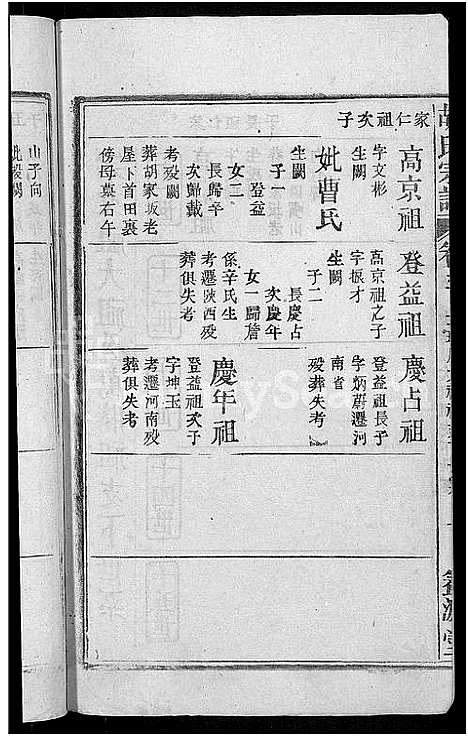 家仁祖次子
高京祖
字文彬
生闕
妣曹氏
生闕
子一
登益
女二
長歸辛
次歸戴
考殁闕
葬胡家坂老
屋下首田裹
傍母墓右午
登益祖
高京祖之子
字振才
生闕
子二
長慶占
次慶年
女一歸詹
係辛氏生
考遷陝西殁
葬俱失考
慶占祖
登益祖長子
字炳蔚遷河
南省
殁葬失考
慶年祖
登益祖次子
字坤玉
考遷河南殁
葬俱失考
山子向
妣殁闕